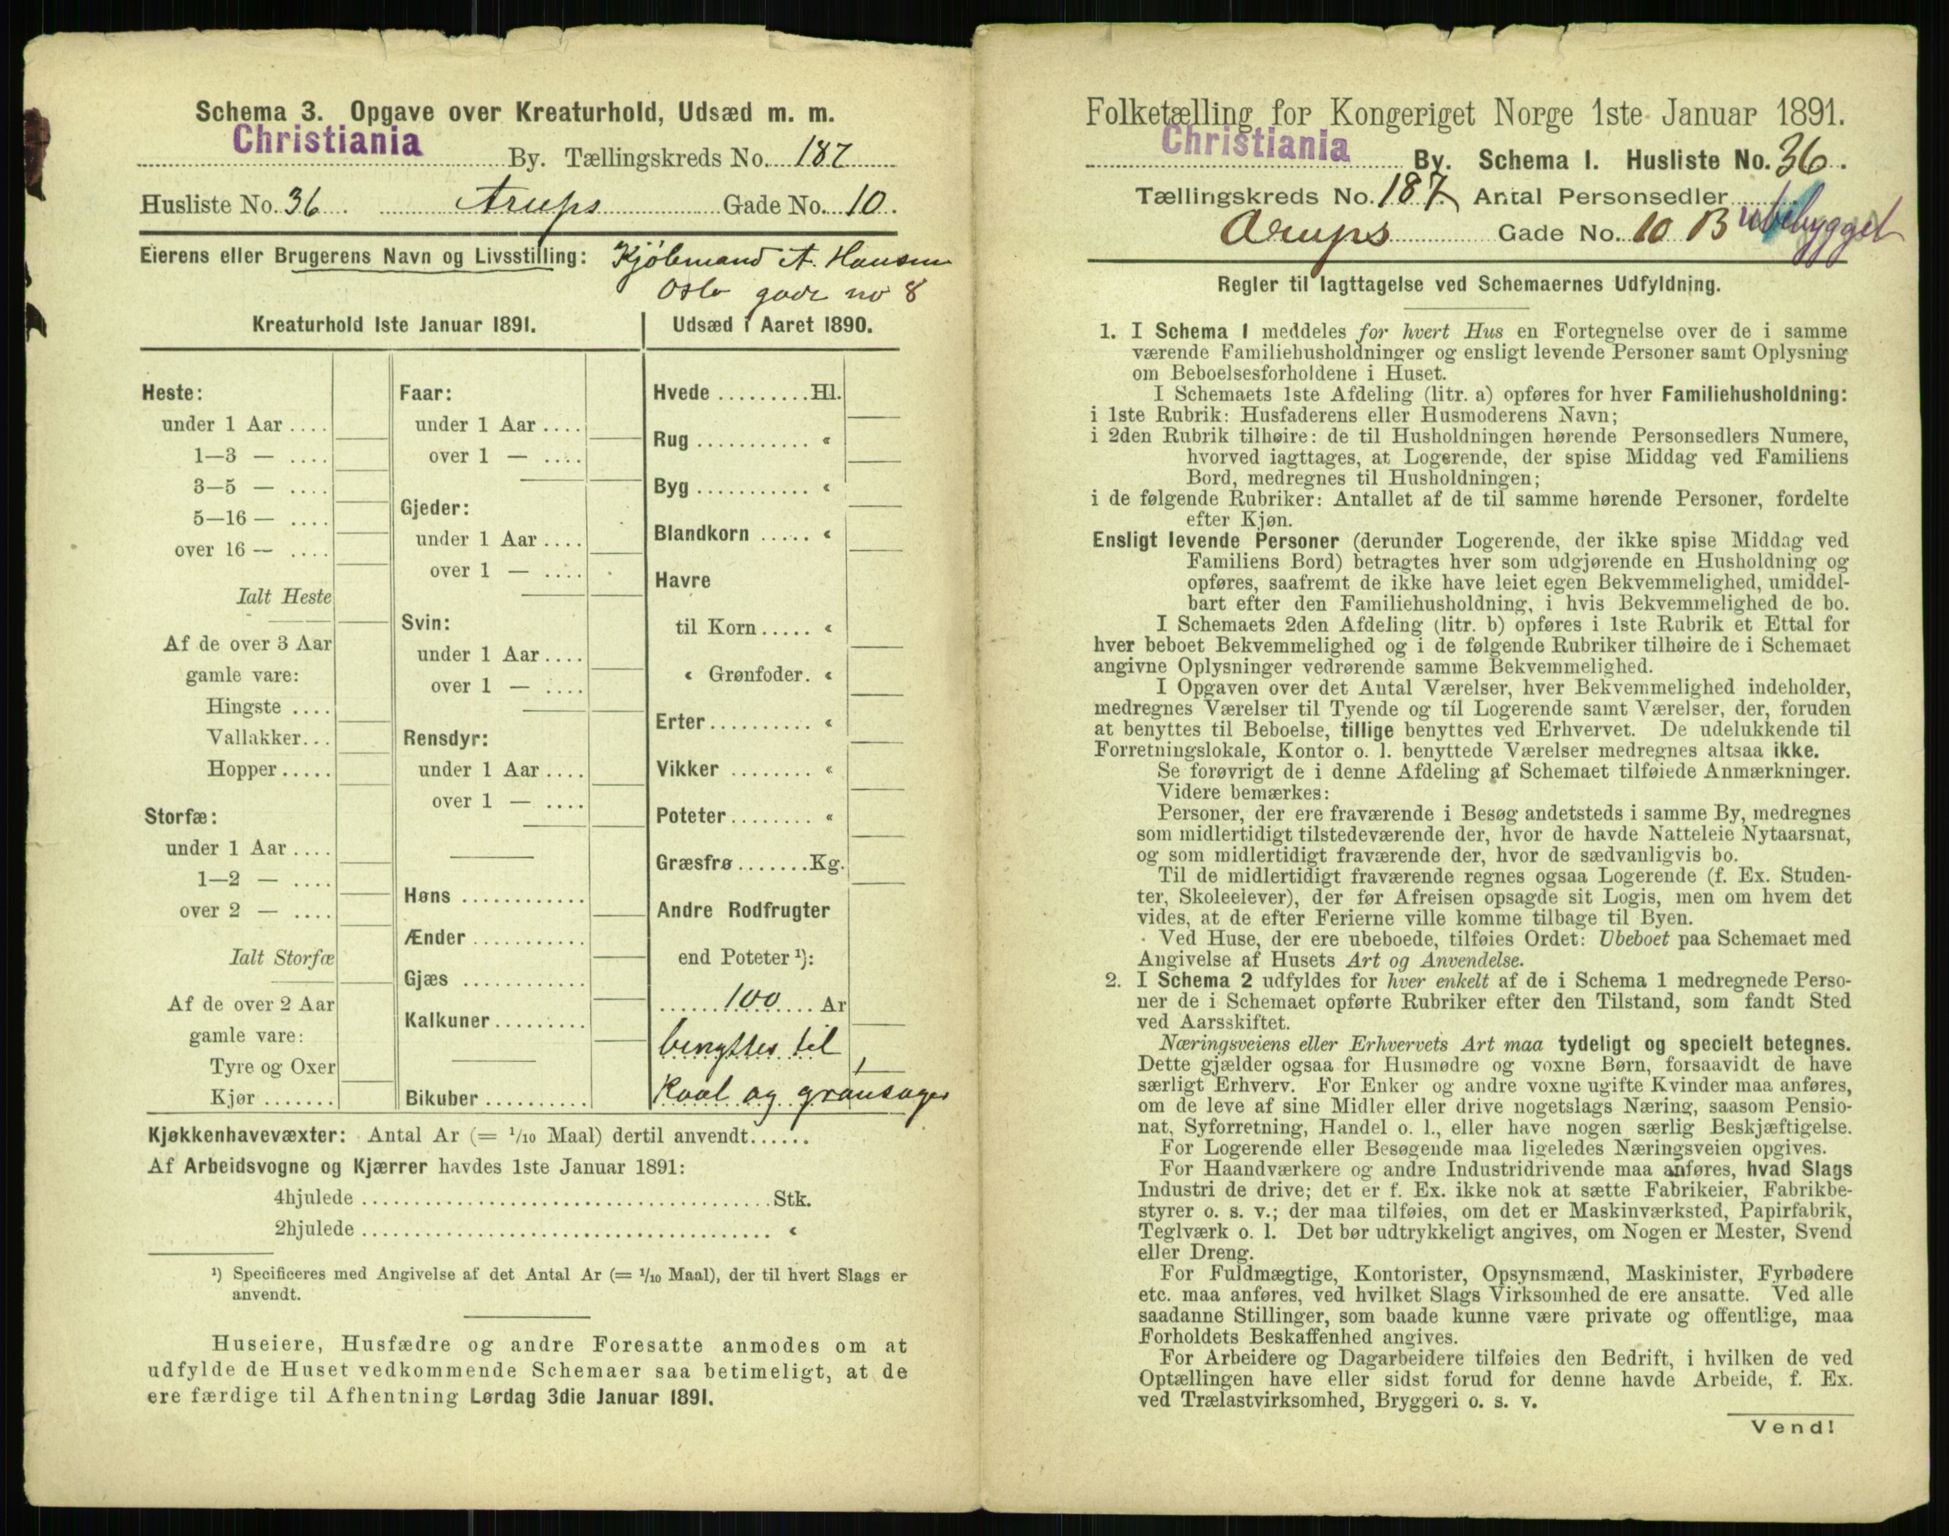 Schema 3. Opgave over Kreaturhold, Udsæd m. m.
Christiania By. Tællingskreds No. 187
Husliste No. 36 Arups Gade No. 10.
Eierens eller Brugerens Navn og Livsstilling: Kjøbmand A. Hansen
Oslo gade no 8
Kreaturhold 1ste Januar 1891.
Heste:
under 1 Aar ....
1—3 — ....
3—5 — ....
5—16 — ....
over 16 — ....
Ialt Heste
Af de over 3 Aar
gamle vare:
Hingste ....
Vallakker...
Hopper.....
Storfæ:
under 1 Aar ....
1—2 — ....
over 2 — ....
Ialt Storfæ
Af de over 2 Aar
gamle vare:
Tyre og Oxer
Kjør .......
Faar:
under 1 Aar ....
over 1 — ....
Gjeder:
under 1 Aar ....
over 1 — ....
Svin:
under 1 Aar ....
over 1 — ....
Rensdyr:
under 1 Aar ....
over 1 — ....
Høns ............
Ænder ...........
Gjæs ............
Kalkuner.........
Bikuber ..........
Udsæd i Aaret 1890.
Hvede .........Hl.
Rug ........... «
Byg ........... «
Blandkorn ..... «
Havre
til Korn..... «
« Grønfoder. «
Erter.......... «
Vikker ........ «
Poteter........ «
Græsfrø .......Kg.
Andre Rodfrugter
end Poteter ¹):
......100....Ar
benyttes til
Kaal og grønsager
Kjøkkenhavevæxter: Antal Ar (= 1/10 Maal) dertil anvendt......
Af Arbeidsvogne og Kjærrer havdes 1ste Januar 1891:
4hjulede ........................................Stk.
2hjulede ........................................ «
¹) Specificeres med Angivelse af det Antal Ar (= 1/10 Maal), der til hvert Slags er
anvendt.
Huseiere, Husfædre og andre Foresatte anmodes om at
udfylde de Huset vedkommende Schemaer saa betimeligt, at de
ere færdige til Afhentning Lørdag 3die Januar 1891.
Folketælling for Kongeriget Norge 1ste Januar 1891.
Christiania By. Schema 1. Husliste No. 36.
Tællingskreds No. 187. Antal Personsedler
Arups Gade No. 10 B ubebygget
Regler til Iagttagelse ved Schemaernes Udfyldning.
1. I Schema 1 meddeles for hvert Hus en Fortegnelse over de i samme
værende Familiehusholdninger og ensligt levende Personer samt Oplysning
om Beboelsesforholdene i Huset.
I Schemaets 1ste Afdeling (litr. a) opføres for hver Familiehusholdning:
i 1ste Rubrik: Husfaderens eller Husmoderens Navn;
i 2den Rubrik tilhøire: de til Husholdningen hørende Personsedlers Numere,
hvorved iagttages, at Logerende, der spise Middag ved Familiens
Bord, medregnes til Husholdningen;
i de følgende Rubriker: Antallet af de til samme hørende Personer, fordelte
efter Kjøn.
Ensligt levende Personer (derunder Logerende, der ikke spise Middag ved
Familiens Bord) betragtes hver som udgjørende en Husholdning og
opføres, saafremt de ikke have leiet egen Bekvemmelighed, umiddel-
bart efter den Familiehusholdning, i hvis Bekvemmelighed de bo.
I Schemaets 2den Afdeling (litr. b) opføres i 1ste Rubrik et Ettal for
hver beboet Bekvemmelighed og i de følgende Rubriker tilhøire de i Schemaet
angivne Oplysninger vedrørende samme Bekvemmelighed.
I Opgaven over det Antal Værelser, hver Bekvemmelighed indeholder,
medregnes Værelser til Tyende og til Logerende samt Værelser, der, foruden
at benyttes til Beboelse, tillige benyttes ved Erhvervet. De udelukkende til
Forretningslokale, Kontor o. l. benyttede Værelser medregnes altsaa ikke.
Se forøvrigt de i denne Afdeling af Schemaet tilføiede Anmærkninger.
Videre bemærkes:
Personer, der ere fraværende i Besøg andetsteds i samme By, medregnes
som midlertidigt tilstedeværende der, hvor de havde Natteleie Nytaarsnat,
og som midlertidigt fraværende der, hvor de sædvanligvis bo.
Til de midlertidigt fraværende regnes ogsaa Logerende (f. Ex. Studen-
ter, Skoleelever), der før Afreisen opsagde sit Logis, men om hvem det
vides, at de efter Ferierne ville komme tilbage til Byen.
Ved Huse, der ere ubeboede, tilføies Ordet: Ubeboet paa Schemaet med
Angivelse af Husets Art og Anvendelse.
2. I Schema 2 udfyldes for hver enkelt af de i Schema 1 medregnede Perso-
ner de i Schemaet opførte Rubriker efter den Tilstand, som fandt Sted
ved Aarsskiftet.
Næringsveiens eller Erhvervets Art maa tydeligt og specielt betegnes.
Dette gjælder ogsaa for Husmødre og voxne Børn, forsaavidt de have
særligt Erhverv. For Enker og andre voxne ugifte Kvinder maa anføres,
om de leve af sine Midler eller drive nogetslags Næring, saasom Pensio-
nat, Syforretning, Handel o. l., eller have nogen særlig Beskjæftigelse.
For Logerende eller Besøgende maa ligeledes Næringsveien opgives.
For Haandværkere og andre Industridrivende maa anføres, hvad Slags
Industri de drive; det er f. Ex. ikke nok at sætte Fabrikeier, Fabrikbe-
styrer o. s. v.; der maa tilføies, om det er Maskinværksted, Papirfabrik,
Teglværk o. l. Det bør udtrykkeligt angives, om Nogen er Mester, Svend
eller Dreng.
For Fuldmægtige, Kontorister, Opsynsmænd, Maskinister, Fyrbødere
etc. maa anføres, ved hvilket Slags Virksomhed de ere ansatte. Ved alle
saadanne Stillinger, som baade kunne være private og offentlige, maa
Forholdets Beskaffenhed angives.
For Arbeidere og Dagarbeidere tilføies den Bedrift, i hvilken de ved
Optællingen have eller sidst forud for denne havde Arbeide, f. Ex.
ved Trælastvirksomhed, Bryggeri o. s. v.
Vend!